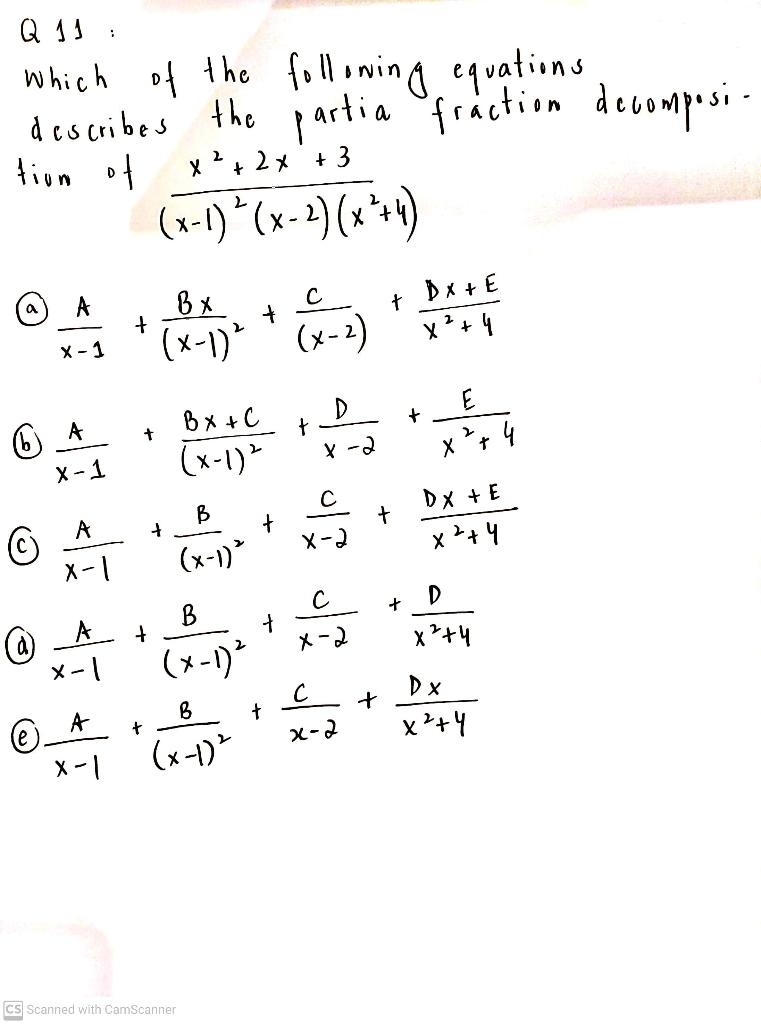 Q 11 :
Which of the following equations
describes the partia fraction decomposi-
tion of x² + 2x + 3 / (x-1)² (x-2) (x²+4)
ⓐ A / x-1 + Bx / (x-1)² + C / (x-2) + Dx + E / x² + 4
ⓑ A / x-1 + Bx + C / (x-1)² + D / x-2 + E / x² + 4
ⓒ A / x-1 + B / (x-1)² + C / x-2 + Dx + E / x² + 4
ⓓ A / x-1 + B / (x-1)² + C / x-2 + D / x²+4
ⓔ A / x-1 + B / (x-1)² + C / x-2 + Dx / x²+4
CS Scanned with CamScanner